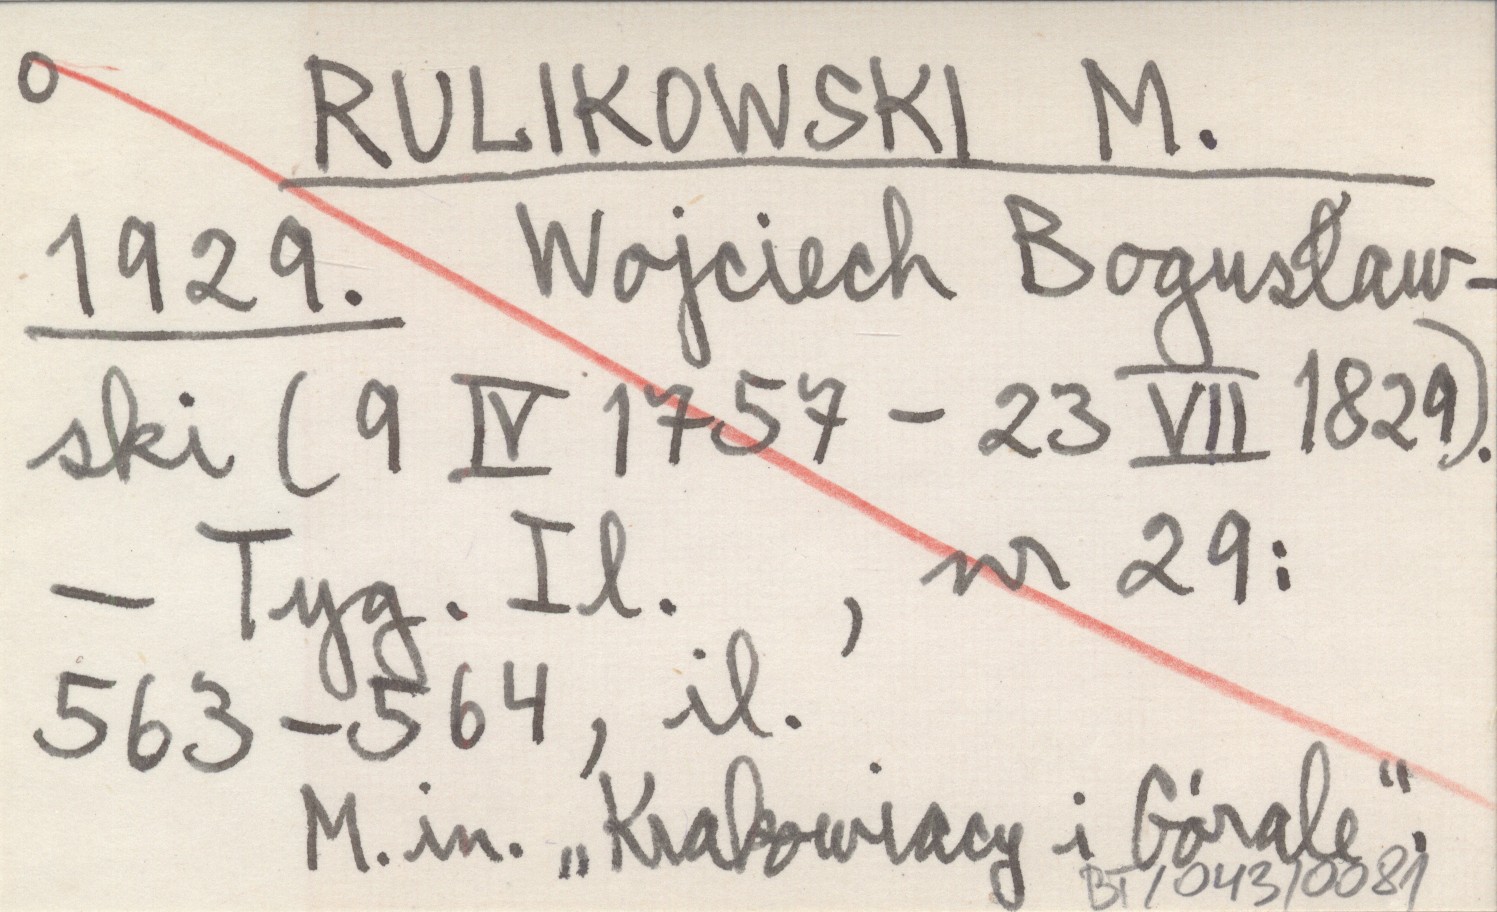 o RULIKOWSKI M.
1929. Wojciech Bogusław-
ski (9 IV 1757 - 23 VII 1829).
— Tyg. Il. , nr 29:
563-564, il.
M.in. „Krakowiacy i Górale".
BT/043/0081